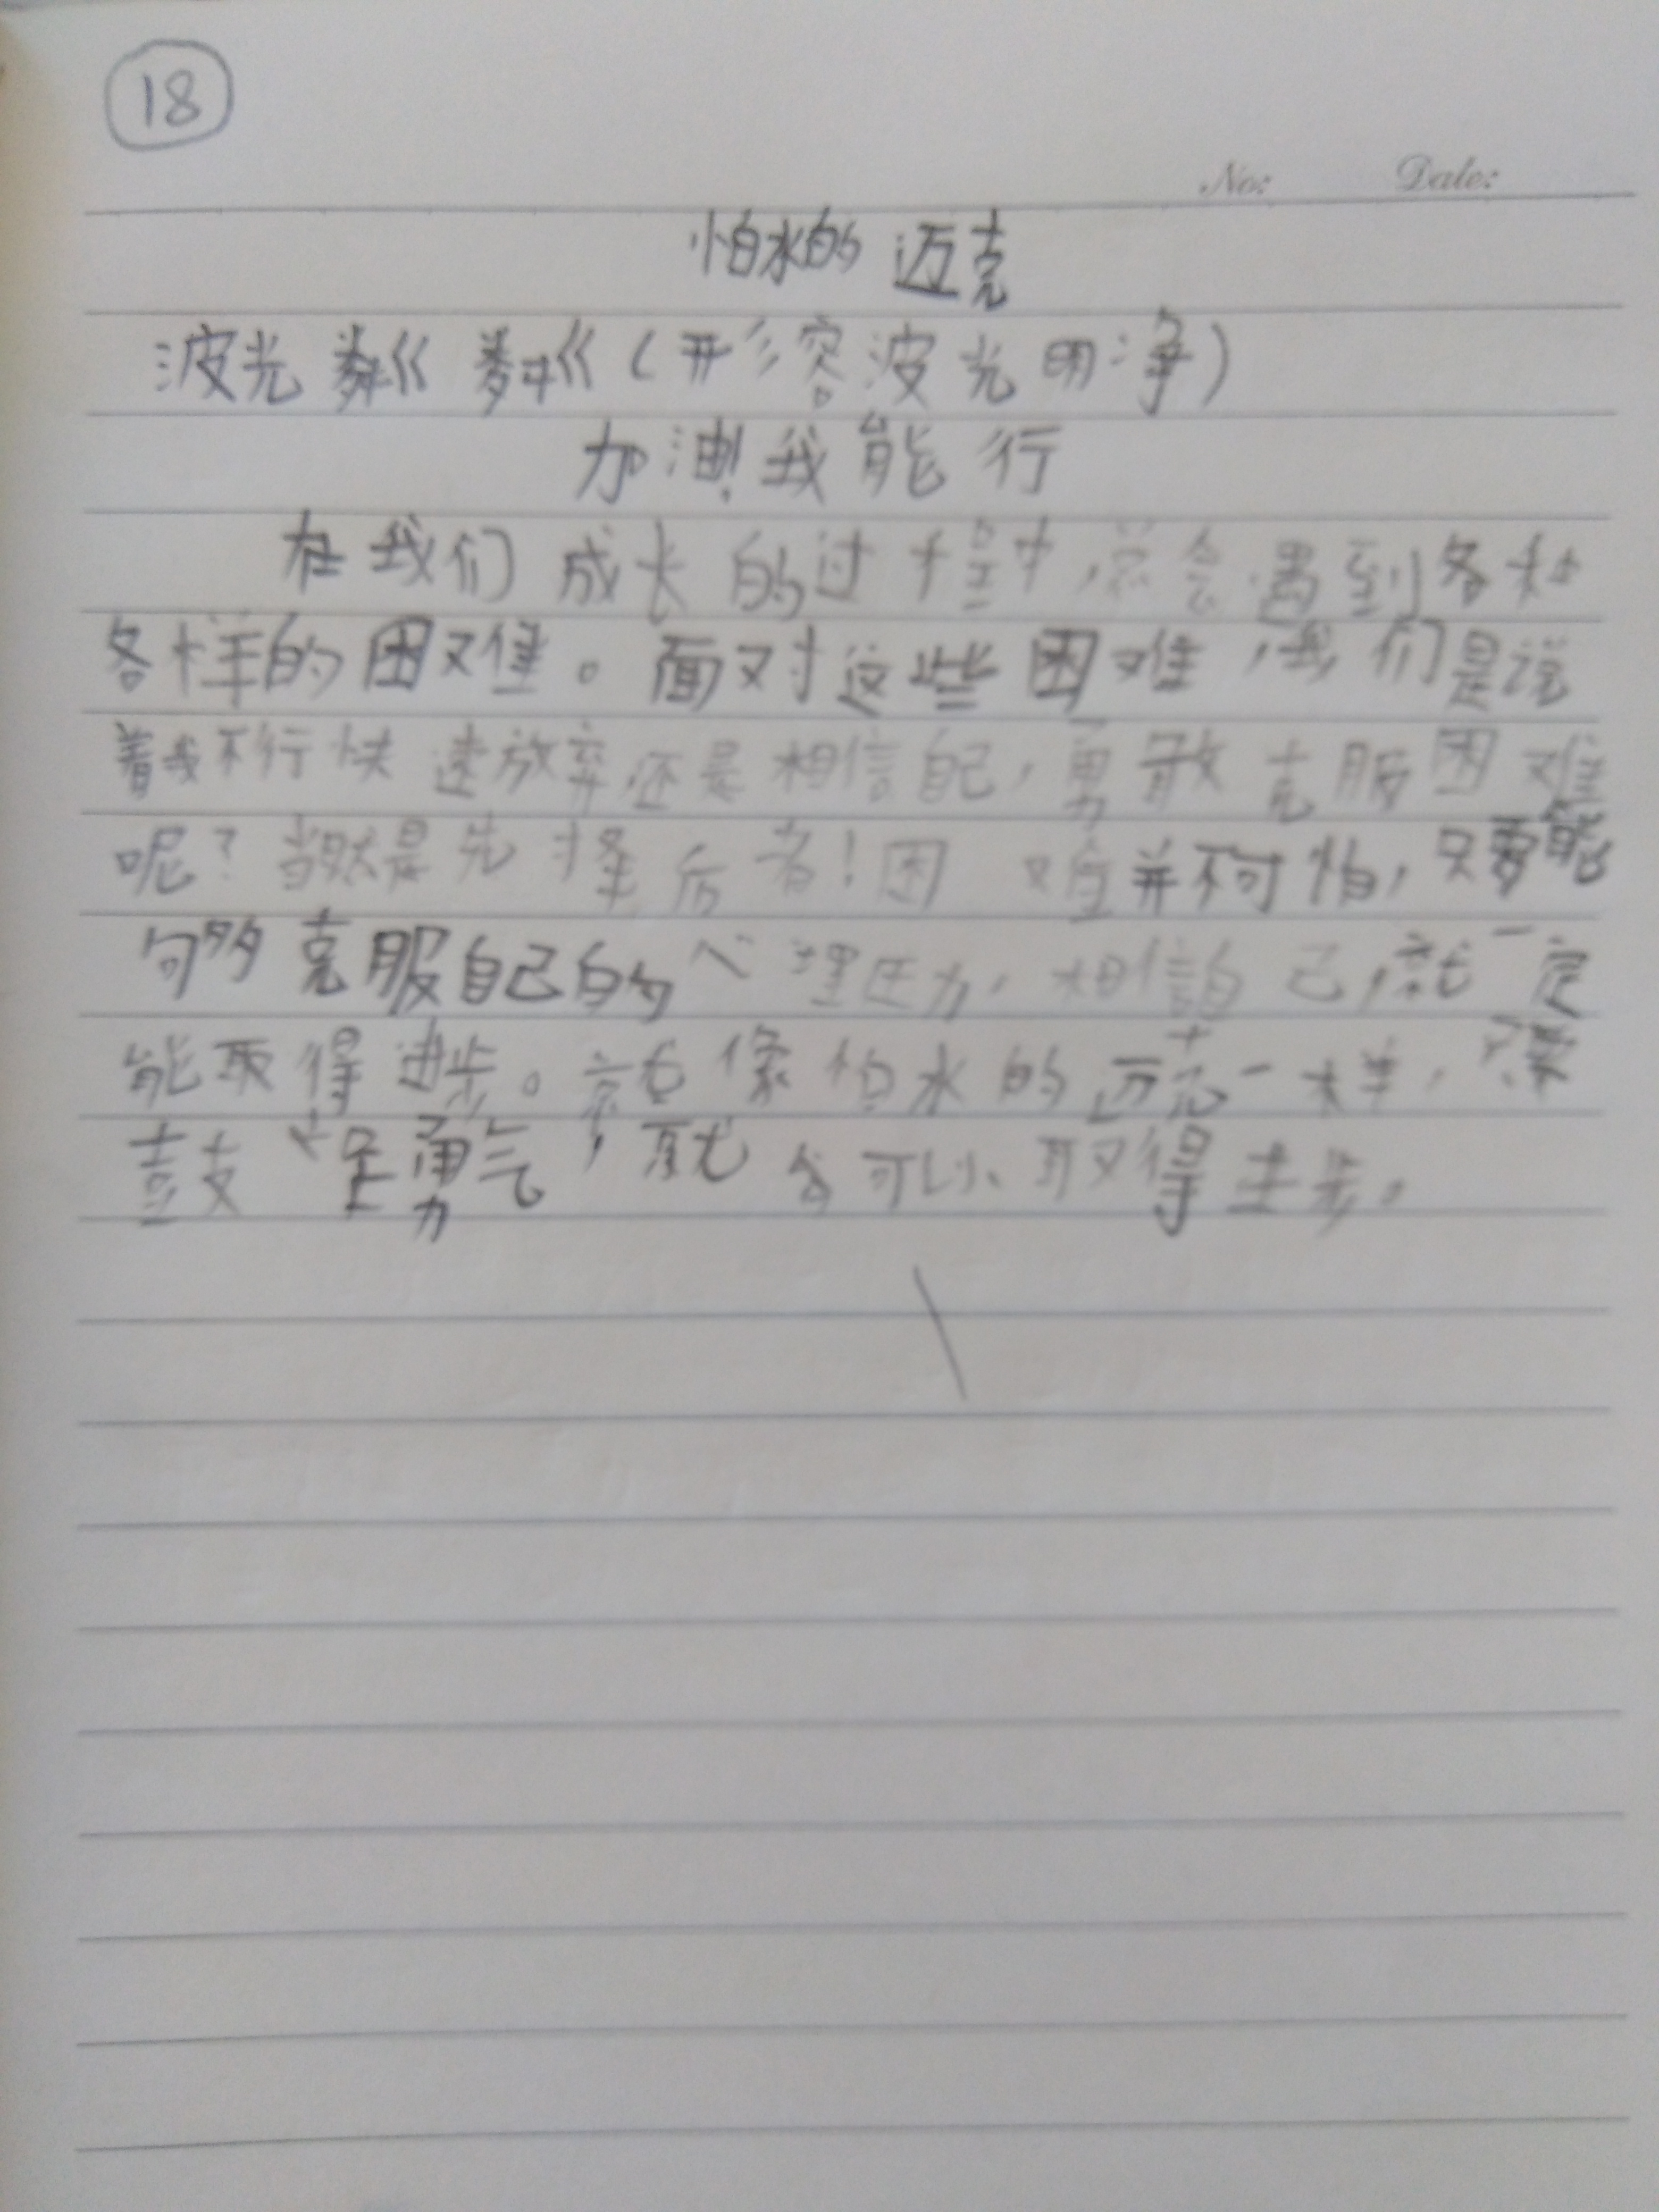 18
No: Date:
怕水的迈克
波光粼粼(形容波光明净)
加油!我能行
在我们成长的过程中,总会遇到各种
各样的困难。面对这些困难,我们是说
着我不行快速放弃还是相信自己,勇敢克服困难
呢?当然是先择后者!困难并不可怕,只要能
够克服自己的心理压力,相信自己,就一定
能取得进步。就像怕水的迈克一样,
鼓足勇气,就会可以取得进步。